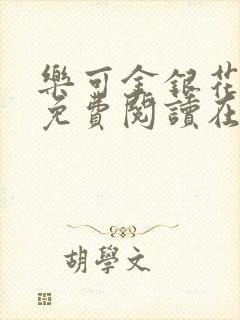 樂可金銀花
免費閱讀在
胡學文